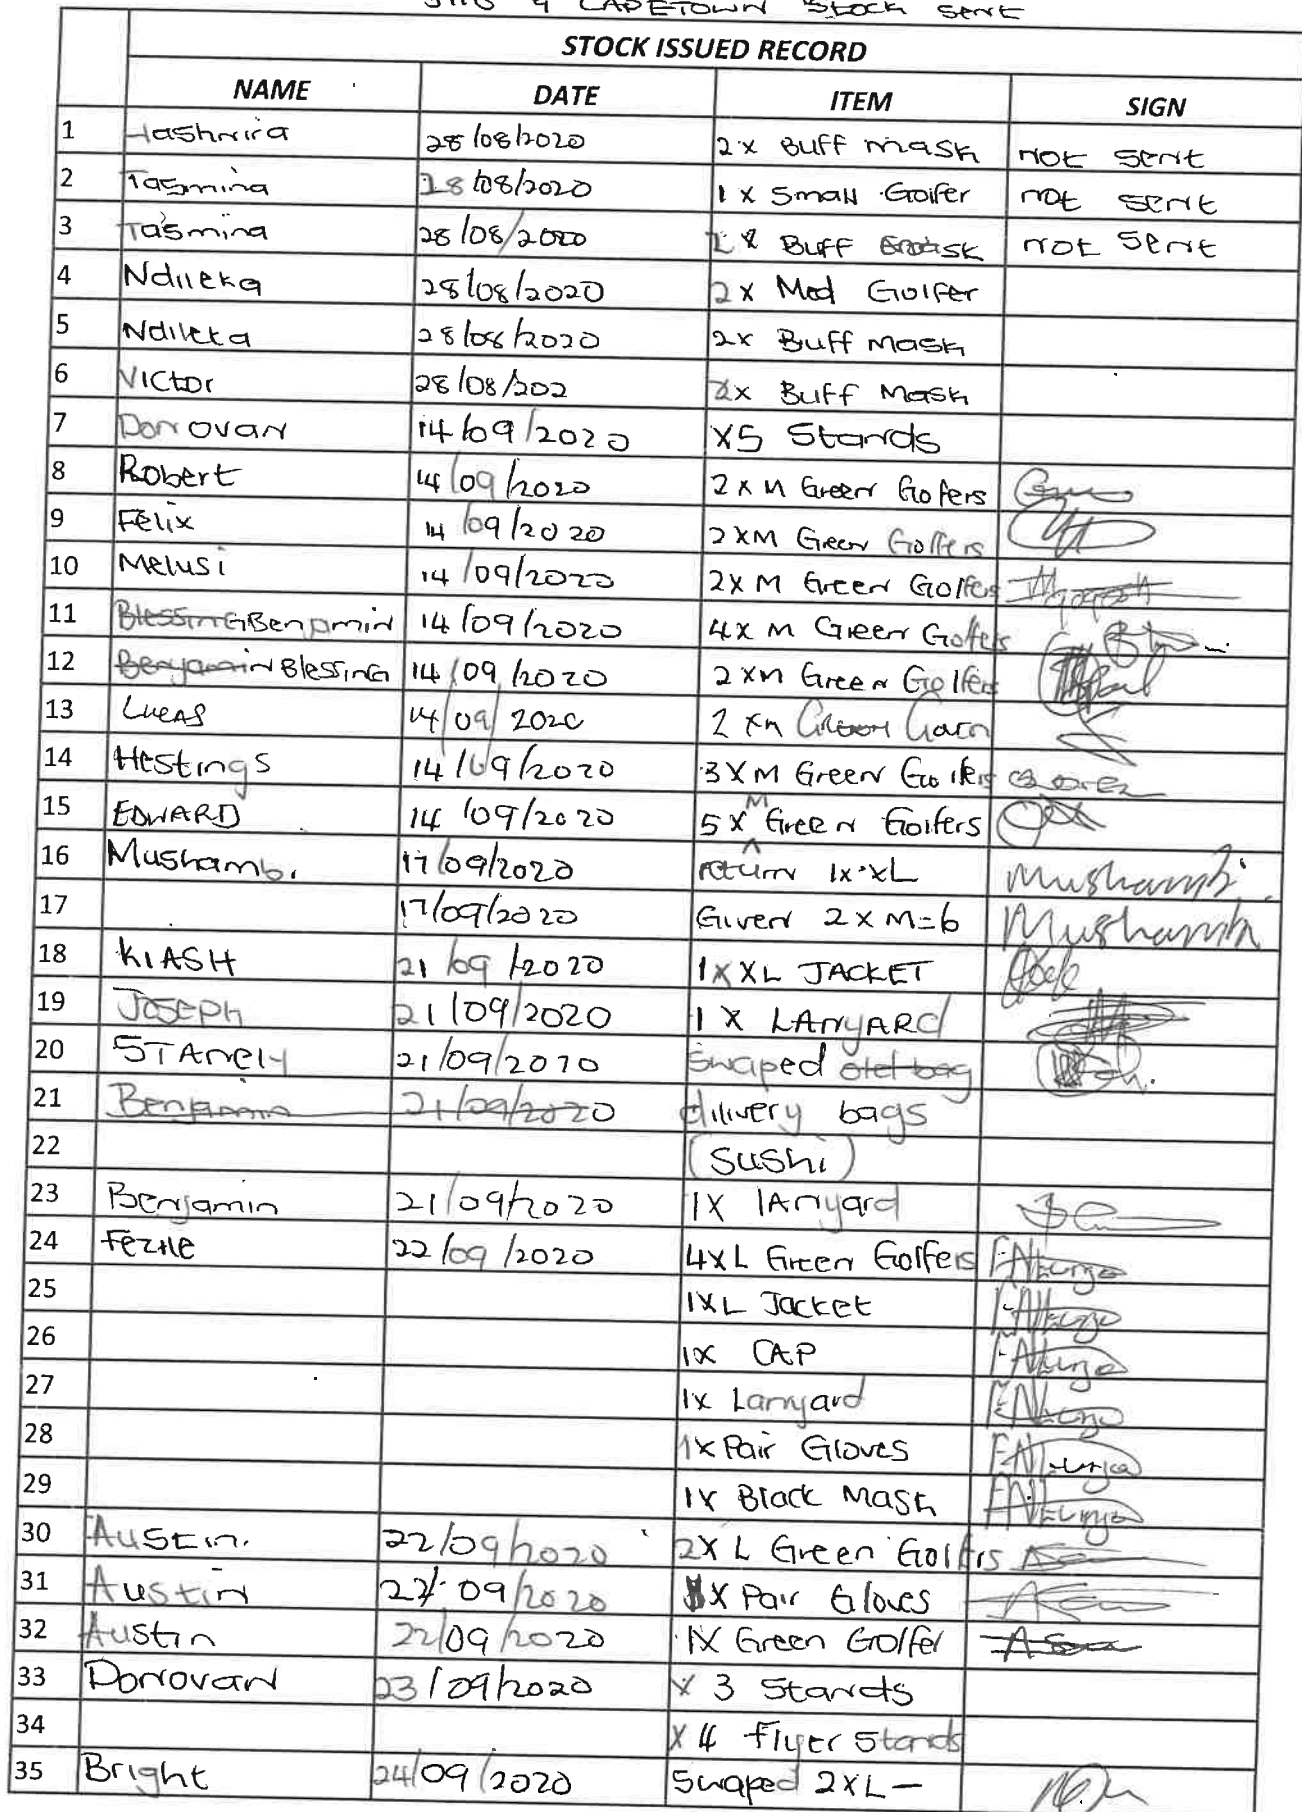 & CAPETOWN Stock sent
STOCK ISSUED RECORD
NAME DATE ITEM SIGN
1 Tashnira 28/08/2020 2x Buff mask not sent
2 Tasmina 28/08/2020 1 x Small Golfer not sent
3 Tasmina 28/08/2020 Buff mask not sent
4 Ndileka 28/08/2020 2x Med Golfer
5 Ndileka 28/08/2020 2x Buff Mask
6 Victor 28/08/202 2x Buff Mask
7 Donovan 14/09/2020 x5 Stands
8 Robert 14/09/2020 2 x M Green Gofers
9 Felix 14/09/2020 2 xM Green Golfers
10 Melusi 14/09/2020 2x M Green Golfers
11 Blessing Benjamin 14/09/2020 4x M Green Golfers
12 Benjamin Blessing 14/09/2020 2 xm Green Golfers
13 Lucas 14/09/2020 2 xm
14 Hestings 14/09/2020 3 X M Green Golfers
15 EDWARD 14/09/2020 5 x M Green Golfers
16 Mushambi 17/09/2020 return 1x XL Mushambi
17 17/09/2020 Given 2 x M=6 Mushambi
18 KIASH 21/09/2020 1 x XL JACKET
19 JOSEPH 21/09/2020 1 X LAnyARd
20 STAnely 21/09/2020 Swaped old bag
21 Benjamin 21/09/2020 dilivery bags
22 (Sushi)
23 Benjamin 21/09/2020 1X lAnyard
24 Fezile 22/09/2020 4XL Green Golfers
25 1XL Jacket
26 1x CAP
27 1x Lanyard
28 1x Pair Gloves
29 1x Black Mask
30 Austin. 22/09/2020 2x L Green Golfers
31 Austin 22/09/2020 x Pair Gloves
32 Austin 22/09/2020 1x Green Golfer
33 Donovan 23/09/2020 x 3 Stands
34 x 4 Flyer Stands
35 Bright 24/09/2020 Swaped 2XL -